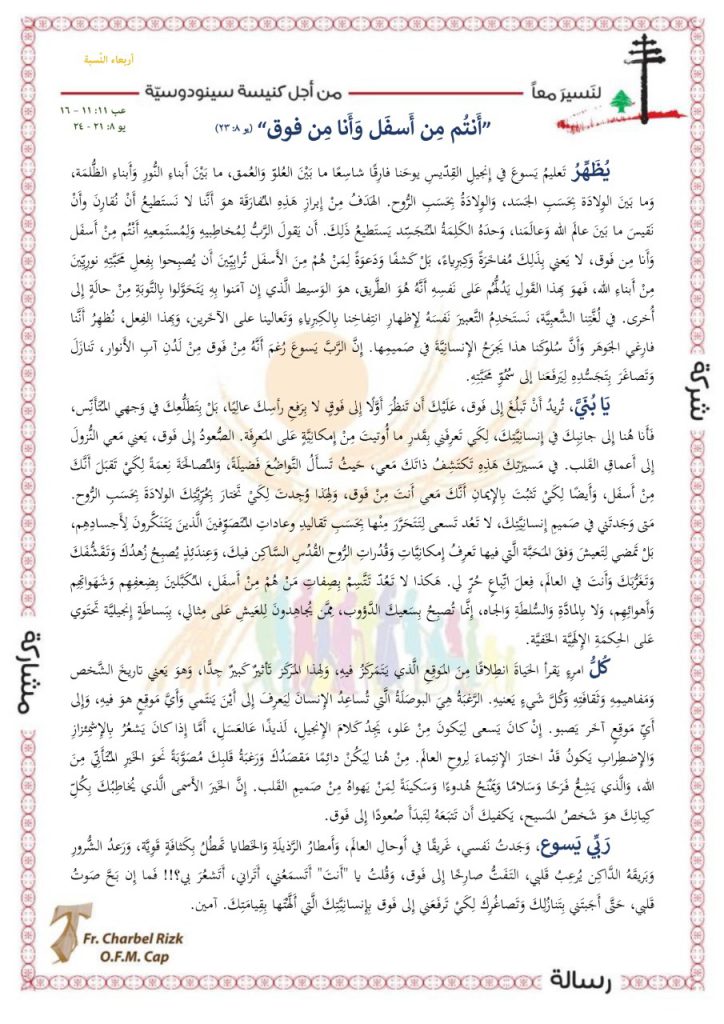 أربعاء النّسبة
لنَسيرَ معاً
من أجل كنيسة سينودوسيّة
عب ١١: ١١ - ١٦
يو ٨: ٢١ - ٢٤
”أَنتُم مِن أَسفَل وَأَنا مِن فوق“ (يو ٨: ٢٣)
يُظَهِّرُ تَعليمُ يَسوعَ في إنجيلِ القِدّيسِ يوحَنا فارِقًا شاسِعًا ما بَيْنَ العُلوّ وَالعُمق، ما بَيْنَ أَبناءِ النُّورِ وَأَبناءِ الظُّلمَة،
وَما بَينَ الوِلادَةِ بِحَسَبِ الجَسَد، وَالوِلادَةُ بِحَسَبِ الرُّوح. الهَدَفُ مِنْ إبرازِ هَذِهِ المُفارَقَة هوَ أَنَّنا لا نَستَطيعُ أَنْ نُقارِنَ وأَنْ
نَقيسَ ما بَينَ عالَمِ الله وَعالَمَنا، وَحدَهُ الكَلِمَةُ المُتَجَسِّد يَستَطيعُ ذَلِكَ. أَن يَقولَ الرَّبُّ لِمُخاطِبيهِ وَلِمُستَمِعيهِ أَنْتُم مِنْ أَسفَل
وَأَنا مِن فَوق، لا يَعني بِذَلِكَ مُفاخَرَةً وَكِبرِياءً، بَلْ كَشفًا وَدَعوَةً لِمَنْ هُمْ مِنَ الأَسفَلِ تُرابِيِّينَ أَن يُصبِحوا بِفِعلِ مَحَبَّتِهِ نورِيِّينَ
مِنْ أَبناءِ الله، فَهوَ بِهذا القَولِ يَدُلُّهُم عَلى نَفسِهِ أَنَّهُ هُوَ الطَّريق، هوَ الوَسيط الَّذي إِن آمَنوا بِهِ يَتَحَوَّلوا بِالتَّوبَةِ مِنْ حالَةٍ إِلى
أُخرى. في لُغَّتِنا الشَّعبِيَّة، نَستَخدِمُ التَّعبيرَ نَفسَهُ لِإظهارِ انتِفاخِنا بِالكِبرِياءِ وَتَعالينا على الآخَرين، وَبِهذا الفِعل، نُظهِرُ أَنَّنا
فارِغي الجَوهَر وَأَنَّ سُلوكَنا هذا يَجرَحُ الإنسانِيَّةَ في صَميمِها. إِنَّ الرَّبَّ يَسوعَ رُغمَ أَنَّهُ مِنْ فَوق مِنْ لَدُنِ آبِ الأَنوار، تَنازَلَ
وَتَصاغَرَ بِتَجَسُّدِهِ لِيَرفَعَنا إلى سُمُوِّ مَحَبَّتِه.
يَا بُنَيَّ، تُريدُ أَنْ تَبلُغَ إلى فَوق، عَلَيْكَ أَن تَنظُرَ أَوَّلًا إلى فَوقٍ لا بِرَفعِ رأسِكَ عالِيًا، بَلْ بِتَطَلُّعِكَ في وَجهي المُتَأَنِّس،
فَأَنا هُنا إلى جانِبِكَ في إنسانِيَّتِكَ، لِكَي تَعرِفَني بِقَدرِ ما أُوتيتَ مِنْ إمكانِيَّةٍ عَلى المَعرِفَة. الصُّعودُ إلى فَوق، يَعني مَعي النُّزولَ
إلى أَعماقِ القَلب. في مَسيرَتِكَ هَذِهِ تَكتَشِفُ ذاتَكَ مَعي، حَيثُ تَسأَلُ التَّواضُعَ فَضيلَةً، وَالمُصالَحَةَ نِعمَةً لِكَيْ تَقبَلَ أَنَّكَ
مِنْ أَسفَل، وَأَيضًا لِكَيْ تَثبُتَ بِالإيمانِ أَنَّكَ مَعي أَنتَ مِنْ فَوق، وَلِهَذا وُجِدتَ لِكَيْ تَختارَ بِحُرِّيَّتِكَ الوِلادَةَ بِحَسَبِ الرُّوح.
مَتى وَجَدتَني في صَميمِ إنسانِيَّتِكَ، لا تَعُد تَسعى لِتَتَحَرَّرَ مِنْها بِحَسَبِ تَقاليدِ وعاداتِ المُتَصَوِّفينَ الَّذينَ يَتَنَكَّرونَ لِأجسادِهِم،
بَلْ تَمضي لِتَعيشَ وَفقَ المَحَبَّة الَّتي فيها تَعرِفُ إمكانِيَّاتِ وَقُدُراتِ الرُّوحِ القُدُسِ السَّاكِنِ فيكَ، وَعِندَئِذٍ يُصبِحُ زُهدُكَ وَتَقَشُّفُكَ
وَتَغَرُّبُكَ وَأَنتَ في العالَم، فِعلَ اتِّباعٍ حُرٍّ لي. هَكذا لا تَعُدْ تَتَّسِمُ بِصِفاتِ مَنْ هُمْ مِنْ أَسفَل، المُكَبَّلينَ بِضِعفِهِم وَشَهَواتِهِم
وَأَهوائِهِم، وَلا بِالمادَّةِ وَالسُّلطَةِ وَالجاه، إِنَّما تُصبِحُ بِسَعيِكَ الدَّؤوب، مِمَّن يُجاهِدونَ لِلعَيشِ عَلى مِثالي، بِبَساطَةٍ إنجيلِيَّة تَحتَوي
عَلى الحِكمَةِ الإلَهِيَّةِ الخَفِيَّة.
كُلُّ امرِءٍ يَقرأُ الحَياةَ انطلاقًا مِنَ المَوقِعِ الَّذي يَتَمَركَزُ فيهِ، وَلِهذا المَركَزِ تَأثيرٌ كَبيرٌ جِدًّا، وَهوَ يَعني تاريخَ الشَّخص
وَمَفاهيمِهِ وَثَقافَتِهِ وَكُلَّ شَيءٍ يَعنيهِ. الرَّغبَةُ هِيَ البوصَلَةُ الَّتي تُساعِدُ الإنسانَ لِيَعرِفَ إلى أَيْنَ يَنتَمي وَأَيَّ مَوقِعٍ هوَ فيه، وَإلى
أَيّ مَوقِعٍ آخَر يَصبو. إِنْ كانَ يَسعى لِيَكونَ مِنْ عَلو، يَجِدُ كَلامَ الإنجيل، لَذيذًا عالعَسَل، أَمَّا إذا كانَ يَشعُرُ بِالإشمِئزازِ
وَالإضطِرابِ يَكونُ قَدْ اختارَ الإنتِماءَ لِروحِ العالَم. مِنْ هُنا لِيَكُنْ دائِمًا مَقصَدُكَ وَرَغبَةُ قَلبِكَ مُصَوَّبَةً نَحوَ الخَيرِ المُتَأَتِّي مِنَ
الله، وَالَّذي يَشِعُّ فَرَحًا وَسَلامًا وَيَمْنَحُ هُدوءًا وَسَكينَةً لِمَنْ يَهواهُ مِنْ صَميمِ القَلب. إِنَّ الخَيرَ الأَسمى الَّذي يُخاطِبُكَ بِكُلِّ
كِيانِكَ هوَ شَخصُ المَسيح، يَكفيكَ أَن تَتبَعَهُ لِتَبدَأَ صُعودًا إلى فَوق.
رَبِّي يَسوع، وَجَدتُ نَفسي، غَريقًا في أَوحالِ العالَم، وَأَمطارُ الرَّذيلَةِ وَالخَطايا تَمطُلُ بِكَثافَةٍ قَوِيَّة، وَرَعدُ الشُّرورِ
وَبَريقَهُ الدَّاكِن يُرعِبُ قَلبي، التَفَتُّ صارِخًا إلى فَوق، وَقُلتُ يا "أَنتَ" أَتَسمَعُني، أَتَراني، أَتَشعُرَ بي؟!! فَما إن بَحَّ صَوتُ
قَلبي، حَتَّى أَجَبتَني بِتَنازُلِكَ وَتَصاغُرِكَ لِكَيْ تَرفَعَني إلى فَوق بِإنسانِيَّتِكَ الَّتي أَلَّهْتَها بِقِيامَتِكَ. آمين.
شركة
مشاركة
Fr. Charbel Rizk
O.F.M. Cap
رسالة